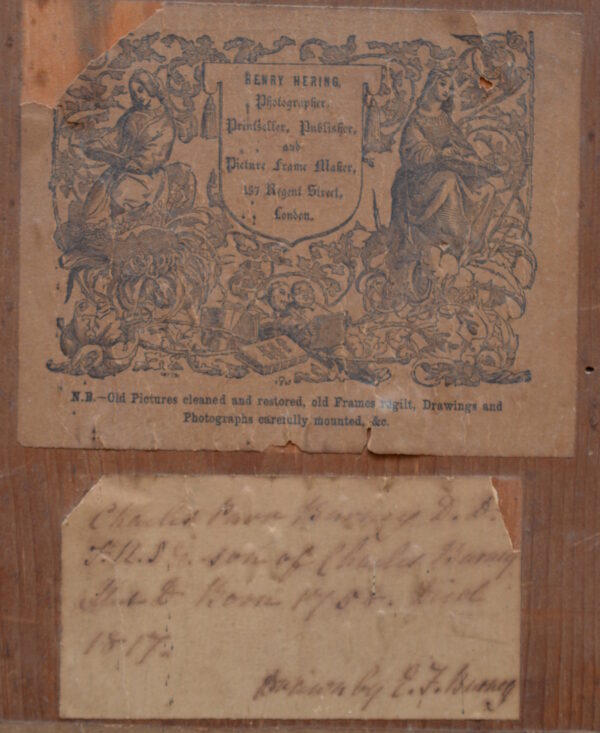 HENRY HERING,
Photographer,
Printseller, Publisher,
and
Picture Frame Maker,
137 Regent Street,
London.
N.B.—Old Pictures cleaned and restored, old Frames regilt, Drawings and
Photographs carefully mounted, &c.
Charles Parr Burney D.D.
son of Charles Burney
D Born 1758. Died
1817.
Drawn by E. F. Burney